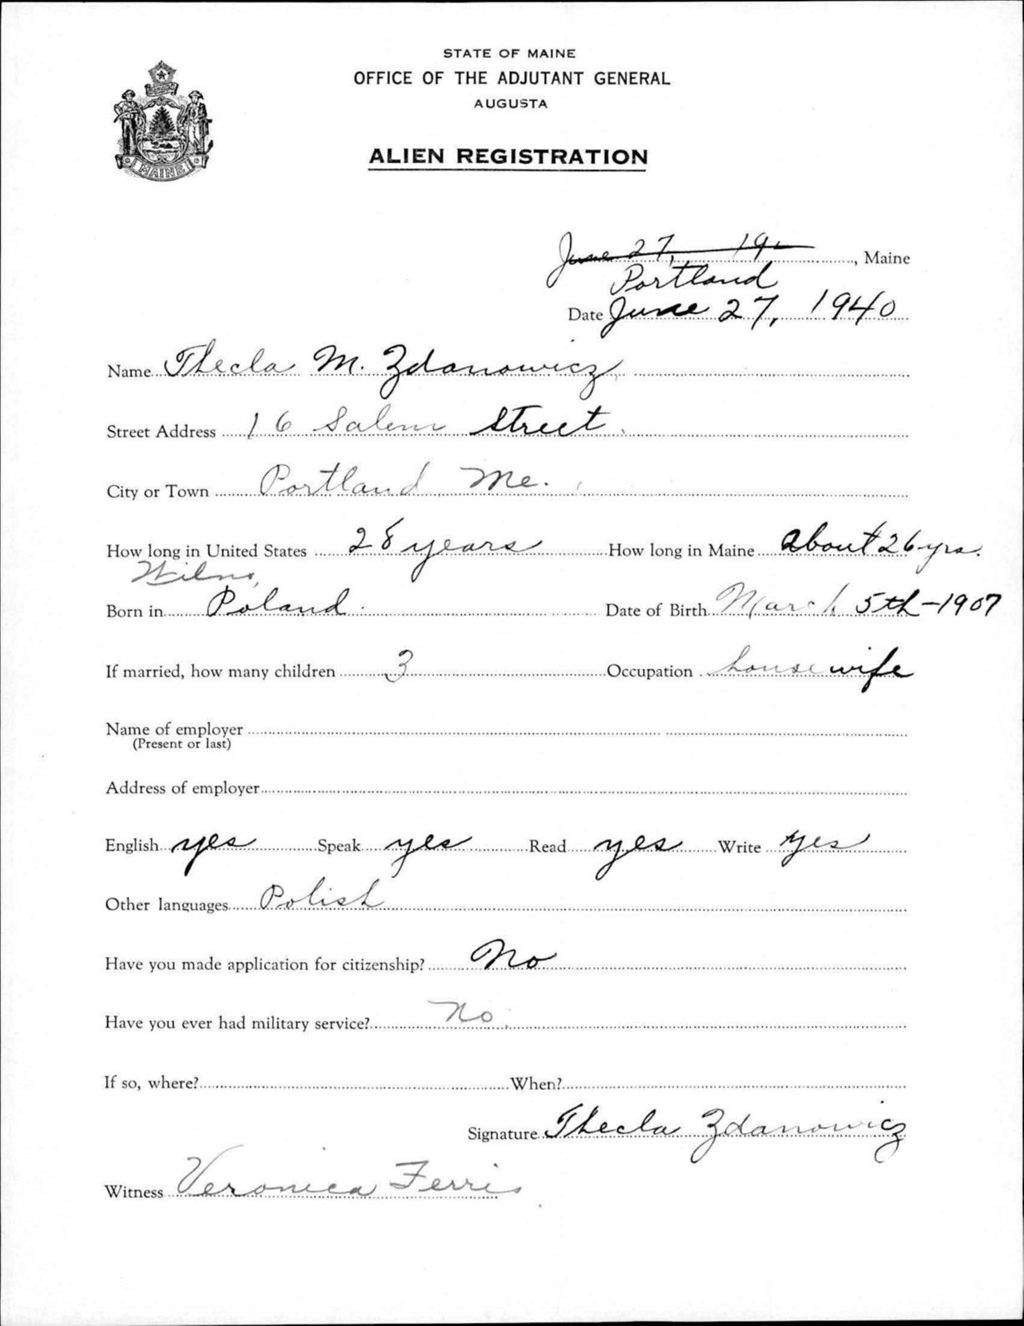 STATE OF MAINE
OFFICE OF THE ADJUTANT GENERAL
AUGUSTA
ALIEN REGISTRATION
MAINE
June 27, 19 , Maine
Portland
Date June 27, 1940
Name Thecla M. Zdanowicz
Street Address 16 Salem Street.
City or Town Portland, Me.
How long in United States 28 years How long in Maine About 26 yrs.
Wilno,
Born in Poland. Date of Birth March 5th-1907
If married, how many children 3 Occupation housewife
Name of employer
(Present or last)
Address of employer
English yes Speak yes Read yes Write yes
Other languages Polish
Have you made application for citizenship? No
Have you ever had military service? No.
If so, where? When?
Signature Thecla Zdanowicz
Witness Veronica Ferris